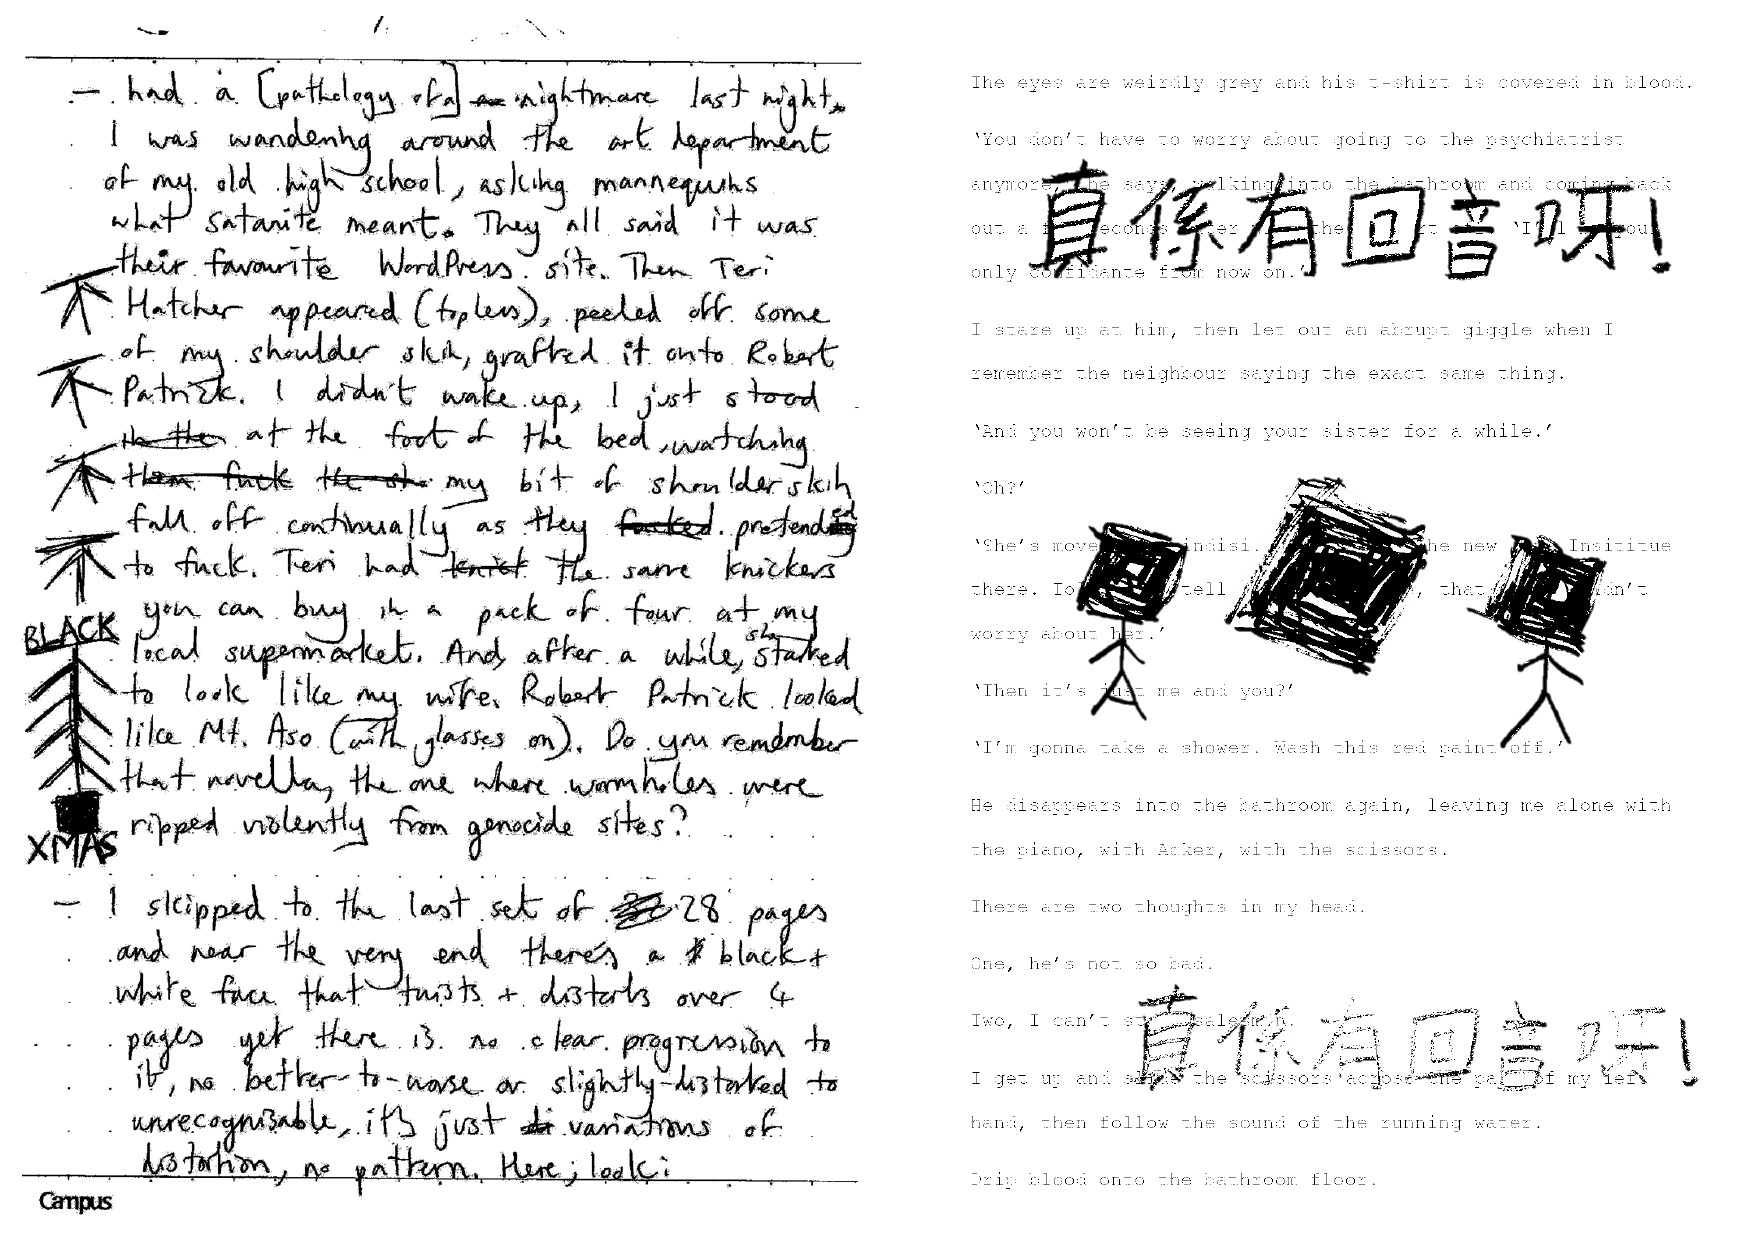 — had a [pathology of a] nightmare last night.
I was wandering around the art department
of my old high school, asking mannequins
what satanite meant. They all said it was
their favourite WordPress site. Then Teri
Hatcher appeared (topless), peeled off some
of my shoulder skin, grafted it onto Robert
Patrick. I didn't wake up, I just stood
in the at the foot of the bed, watching
them fuck the sho my bit of shoulder skin
fall off continually as they fucked pretended
to fuck. Teri had the same knickers
you can buy in a pack of four at my
local supermarket. And, after a while, she started
to look like my wife. Robert Patrick looked
like Mt. Aso (with glasses on). Do you remember
that novella, the one where wormholes were
ripped violently from genocide sites?
BLACK
XMAS
— I skipped to the last set of 28 pages
and near the very end there's a black +
white face that twists + distorts over 4
pages yet there is no clear progression to
it, no better-to-worse or slightly-distorted to
unrecognisable, it's just variations of
distortion, no pattern. Here; look:
Campus
The eyes are weirdly grey and his t-shirt is covered in blood.
‘You don’t have to worry about going to the psychiatrist
anymore,’ he says, walking into the bathroom and coming back
out a seconds the ‘I’ll
only confidante from now on.’
真係有回音呀!
I stare up at him, then let out an abrupt giggle when I
remember the neighbour saying the exact same thing.
‘And you won’t be seeing your sister for a while.’
‘Oh?’
‘She’s move indisi. he new Insititue
there. To tell , that dn’t
worry about her.’
‘Then it’s just me and you?’
‘I’m gonna take a shower. Wash this red paint off.’
He disappears into the bathroom again, leaving me alone with
the piano, with Acker, with the scissors.
There are two thoughts in my head.
One, he’s not so bad.
Two, I can’t salesmen.
真係有回音呀!
I get up and the scissors across the palm of my left
hand, then follow the sound of the running water.
Drip blood onto the bathroom floor.